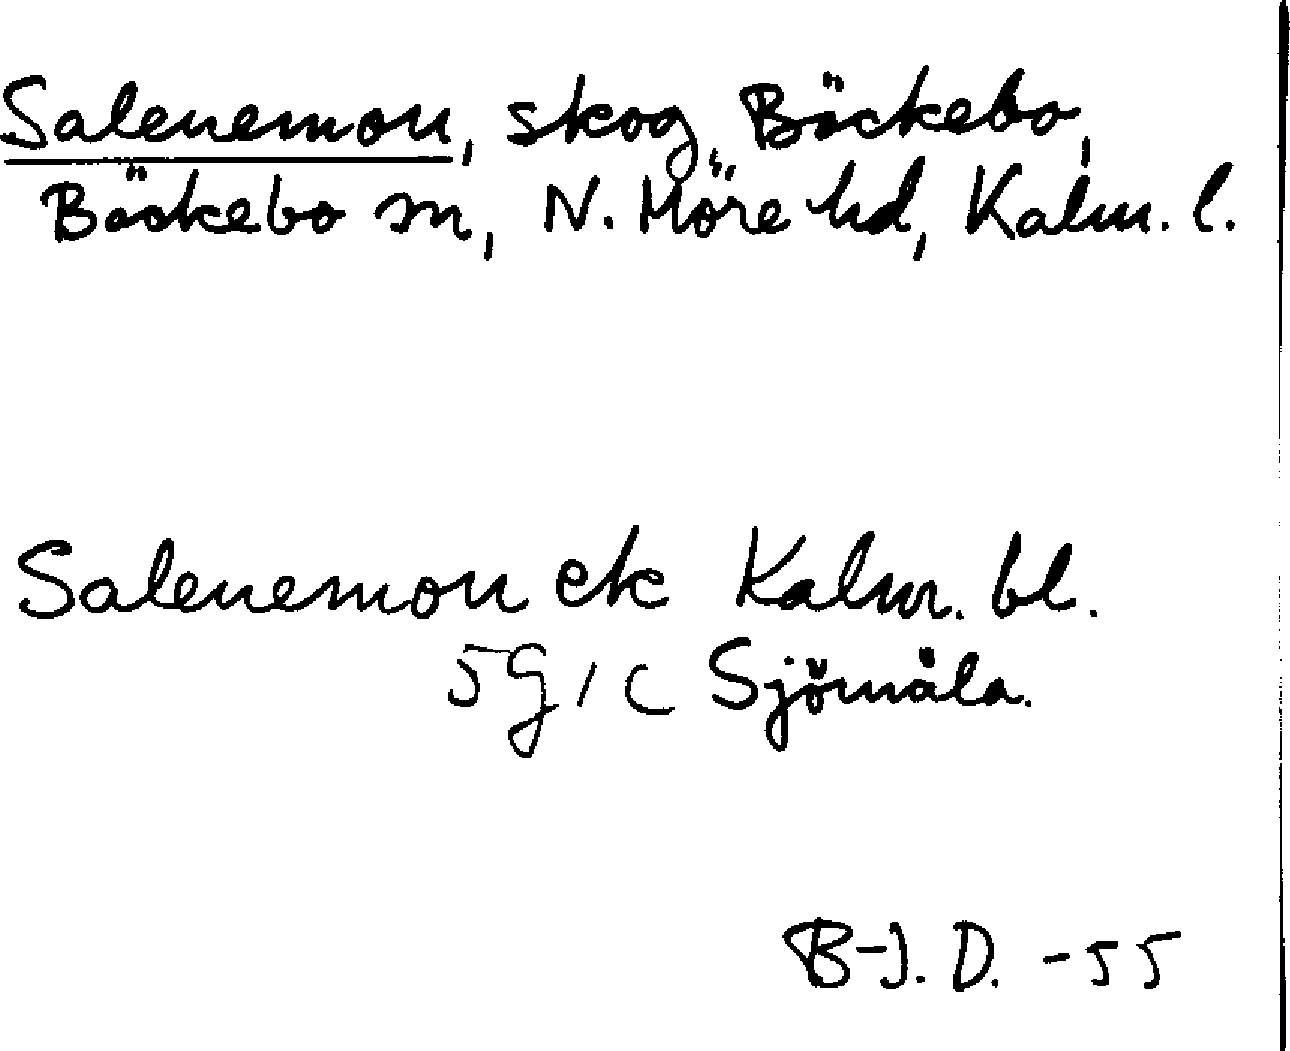 Salenemon, skog, Bäckebo,
Bäckebo sn, N. Möre hd, Kalm. l.
Salenemon ek Kalm. bl.
5G1C Sjömåla.
B-J. D. -55